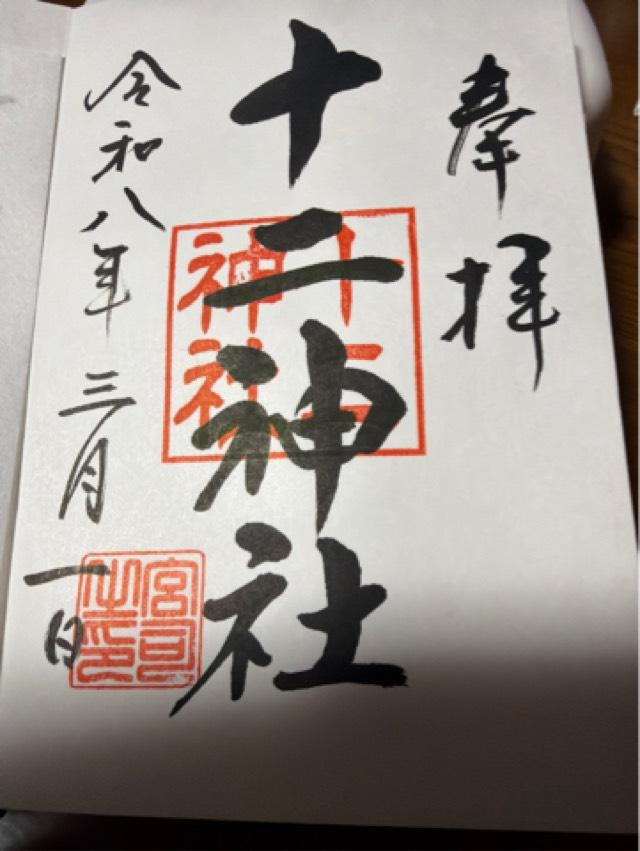 奉拝
十二神社
十二
神社
令和八年三月一日
宮司
之印